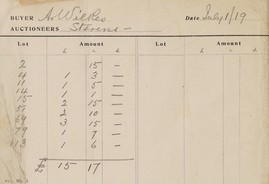 BUYER A. Wilkes Date July 1/19
AUCTIONEERS Stevens –
Lot Amount
2 15 –
4 1 3 –
11 1 5 –
14 1 –
15 2 15 –
2 10 –
3 15 –
79 1 7 –
113 1 6 –
£ 15 17 –